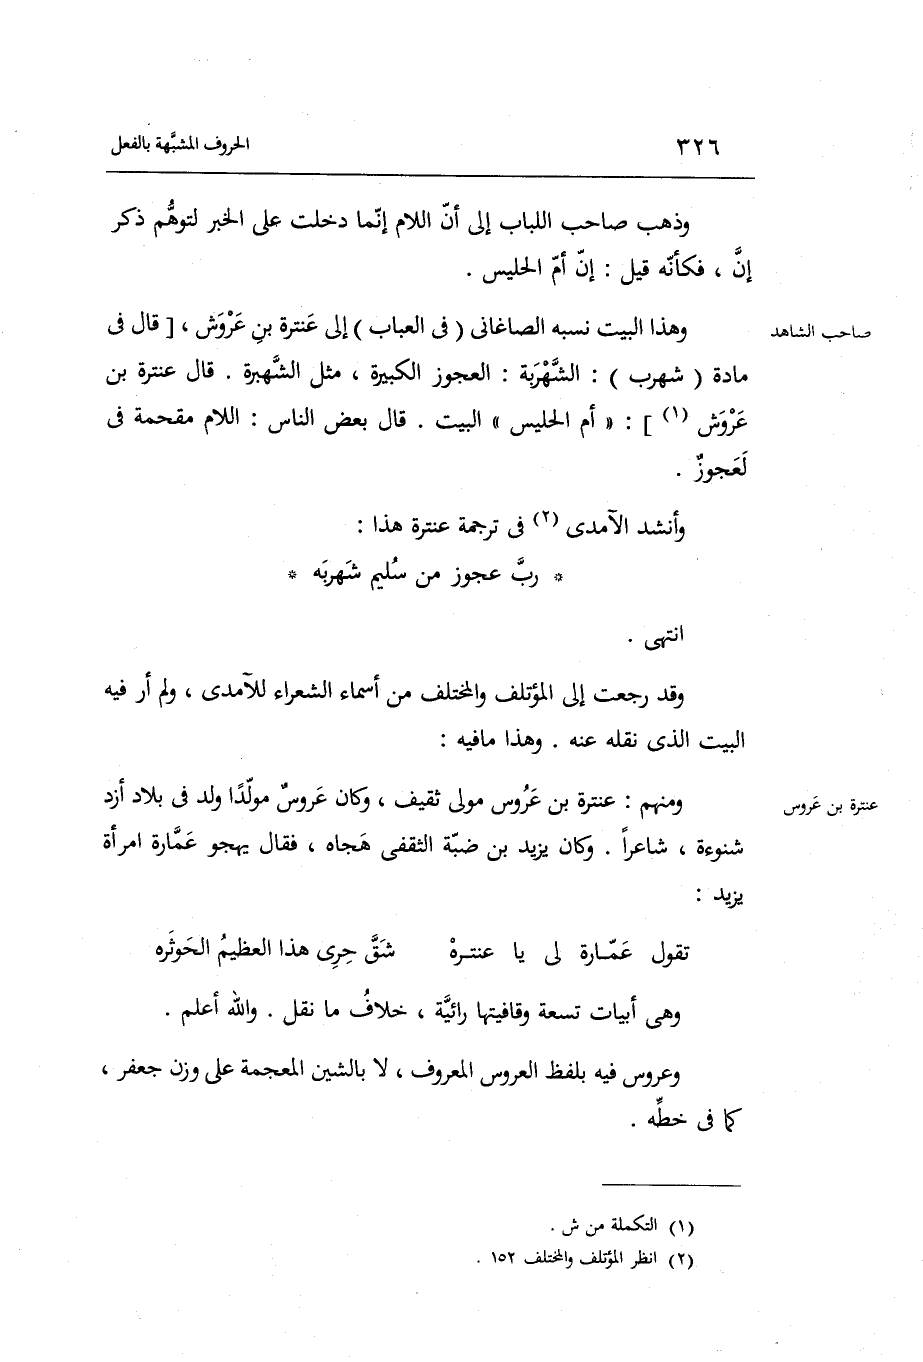 ٣٢٦ الحروف المشبَّهة بالفعل
وذهب صاحب اللباب إلى أنّ اللام إنّما دخلت على الخبر لتوهُّم ذكر
إنَّ ، فكأنّه قيل : إنّ أمّ الحليس .
وهذا البيت نسبه الصاغانى ( فى العباب ) إلى عَنترة بنِ عَرْوَش ، [ قال فى
صاحب الشاهد
مادة ( شهرب ) : الشَّهْرَبة : العجوز الكبيرة ، مثل الشَّهبرة . قال عنترة بن
عَرْوَش (١) ] : « أم الحليس » البيت . قال بعض الناس : اللام مقحمة فى
لَعَجوزٌ .
وأنشد الآمدى (٢) فى ترجمة عنترة هذا :
* ربَّ عجوز من سُليم شَهربَه *
انتهى .
وقد رجعت إلى المؤتلف والمختلف من أسماء الشعراء للآمدى ، ولم أر فيه
البيت الذى نقله عنه . وهذا مافيه :
ومنهم : عنترة بن عَرُوس مولى ثقيف ، وكان عَروسٌ مولّدًا ولد فى بلاد أزد
عنترة بن عَروس
شنوءة ، شاعراً . وكان يزيد بن ضبّة الثقفى هَجاه ، فقال يهجو عَمَّارة امرأة
يزيد :
تقول عَمّارة لى يا عنترهْ شَقَّ حِرِى هذا العظيمُ الحَوثَره
وهى أبيات تسعة وقافيتها رائيَّة ، خلافُ ما نقل . والله أعلم .
وعروس فيه بلفظ العروس المعروف ، لا بالشين المعجمة على وزن جعفر ،
كما فى خطِّه .
(١) التكملة من ش .
(٢) انظر المؤتلف والمختلف ١٥٢ .